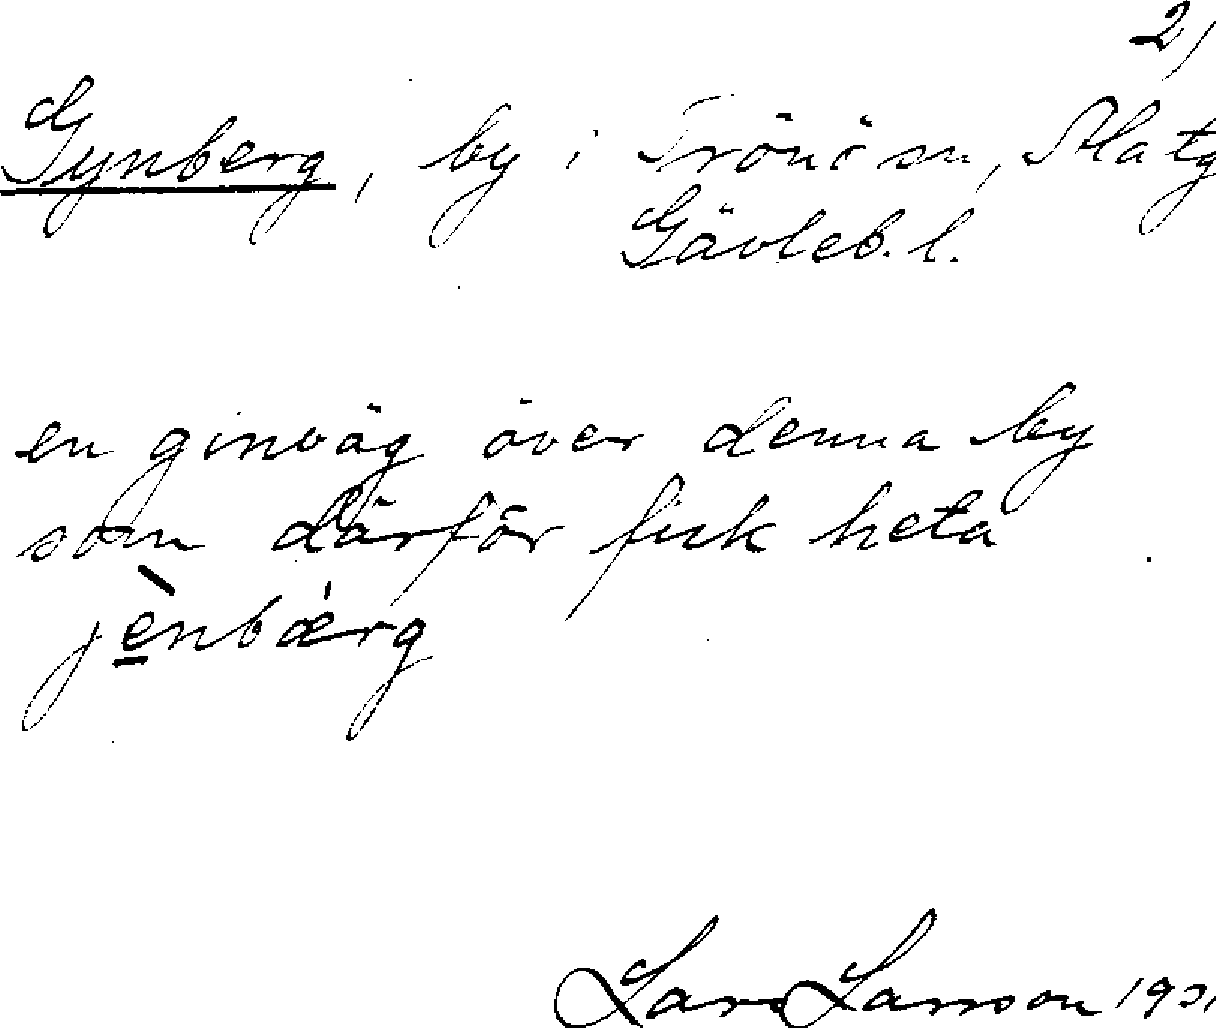 2)
Gynberg, by i Trönö sn, Hla tg
Gävleb. l.
en ginväg över denna by
som därför fick heta
jènbǽrg
Lars Larsson 193